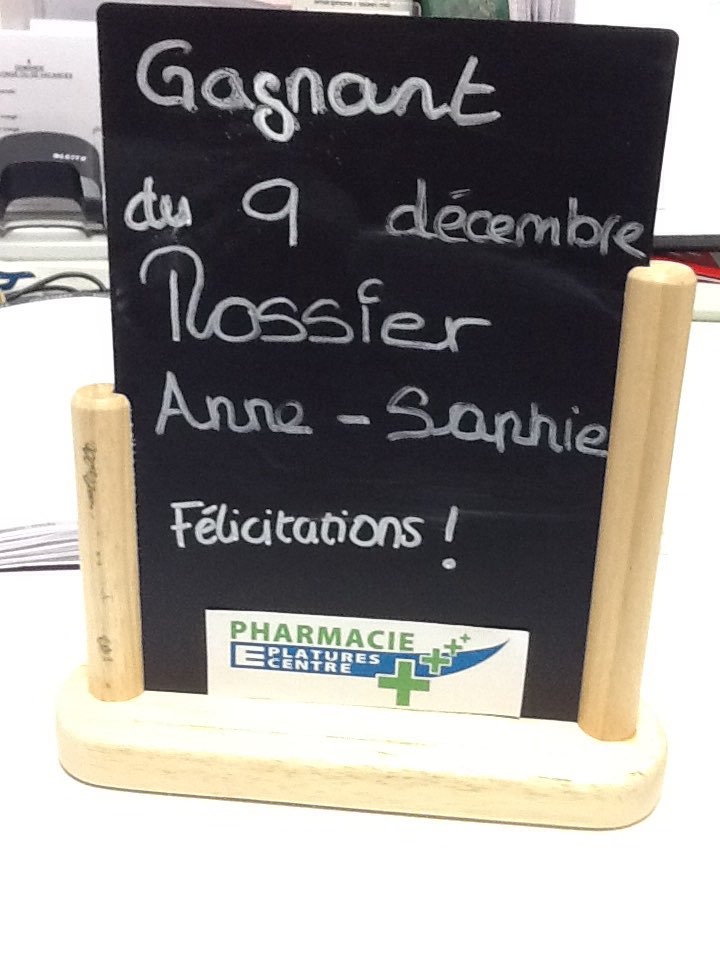 Gagnant
du 9 décembre
Rossier
Anne - Sophie
Félicitations !
PHARMACIE
EPLATURES
CENTRE